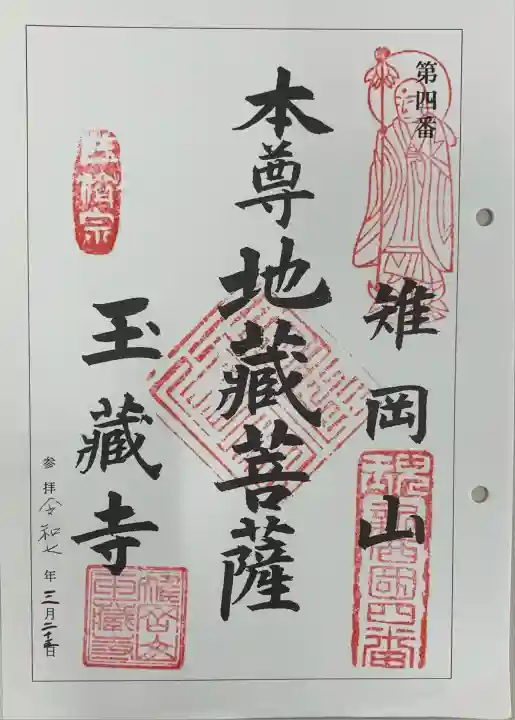 第四番
雉岡山
本尊地藏菩薩
玉藏寺
臨濟宗
参拝令和七年三月二十五日